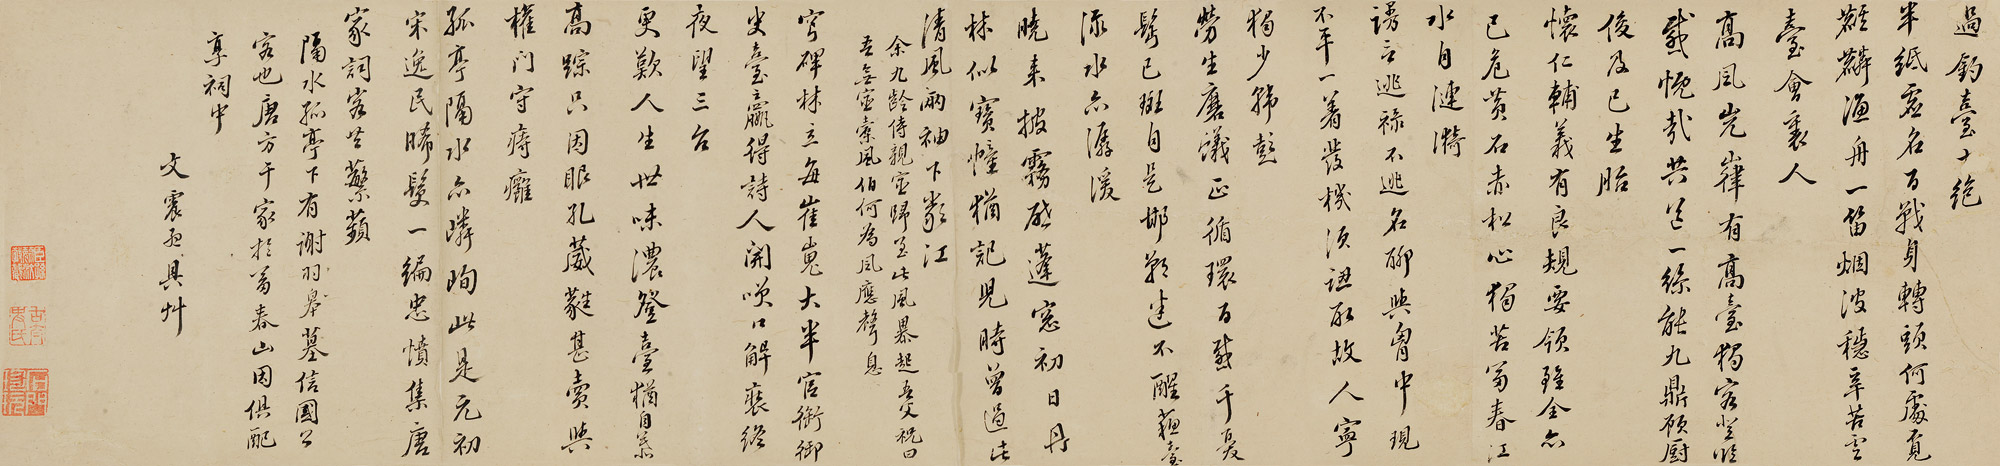 過釣臺十絕
半紙虛名百戰身轉頭何處覓
麒麟漁舟一笛烟波穩辛苦雲
臺會裏人
高風岩嵂有高臺獨客登臨
感慨哉共是一絲能九鼎顧厨
俊及已生胎
懷仁輔義有良規要領雖全亦
已危黃石赤松心獨苦富春江
水自漣漪
謗言逃祿不逃名聊與胸中現
不平一著發機須認取故人寧
獨少韓彭
勞生磨蟻正循環百感千憂
鬢已斑自是邯鄲迷不醒蘇臺
淥水亦潺湲
曉來披霧啟蓬窓初日丹
林似寶幢猶記兒時曾過此
清風兩袖下嚴江
余九齡侍親宦歸至此風暴起吾父祝曰
吾無宦橐風伯何為風應聲息
穹碑林立每崔嵬大半官銜御
史臺贏得詩人開笑口解裝終
夜望三台
更歎人生世味濃登臺猶自羨
高踪只因眼孔葳蕤甚賣與
權門守痔癰
孤亭隔水亦嶙峋此是元初
宋逸民晞髮一編忠憤集唐
家詞客共蘩蘋
隔水孤亭下有謝羽皋墓信國公
客也唐方干家於富春山因俱配
享祠中
文震孟具艸